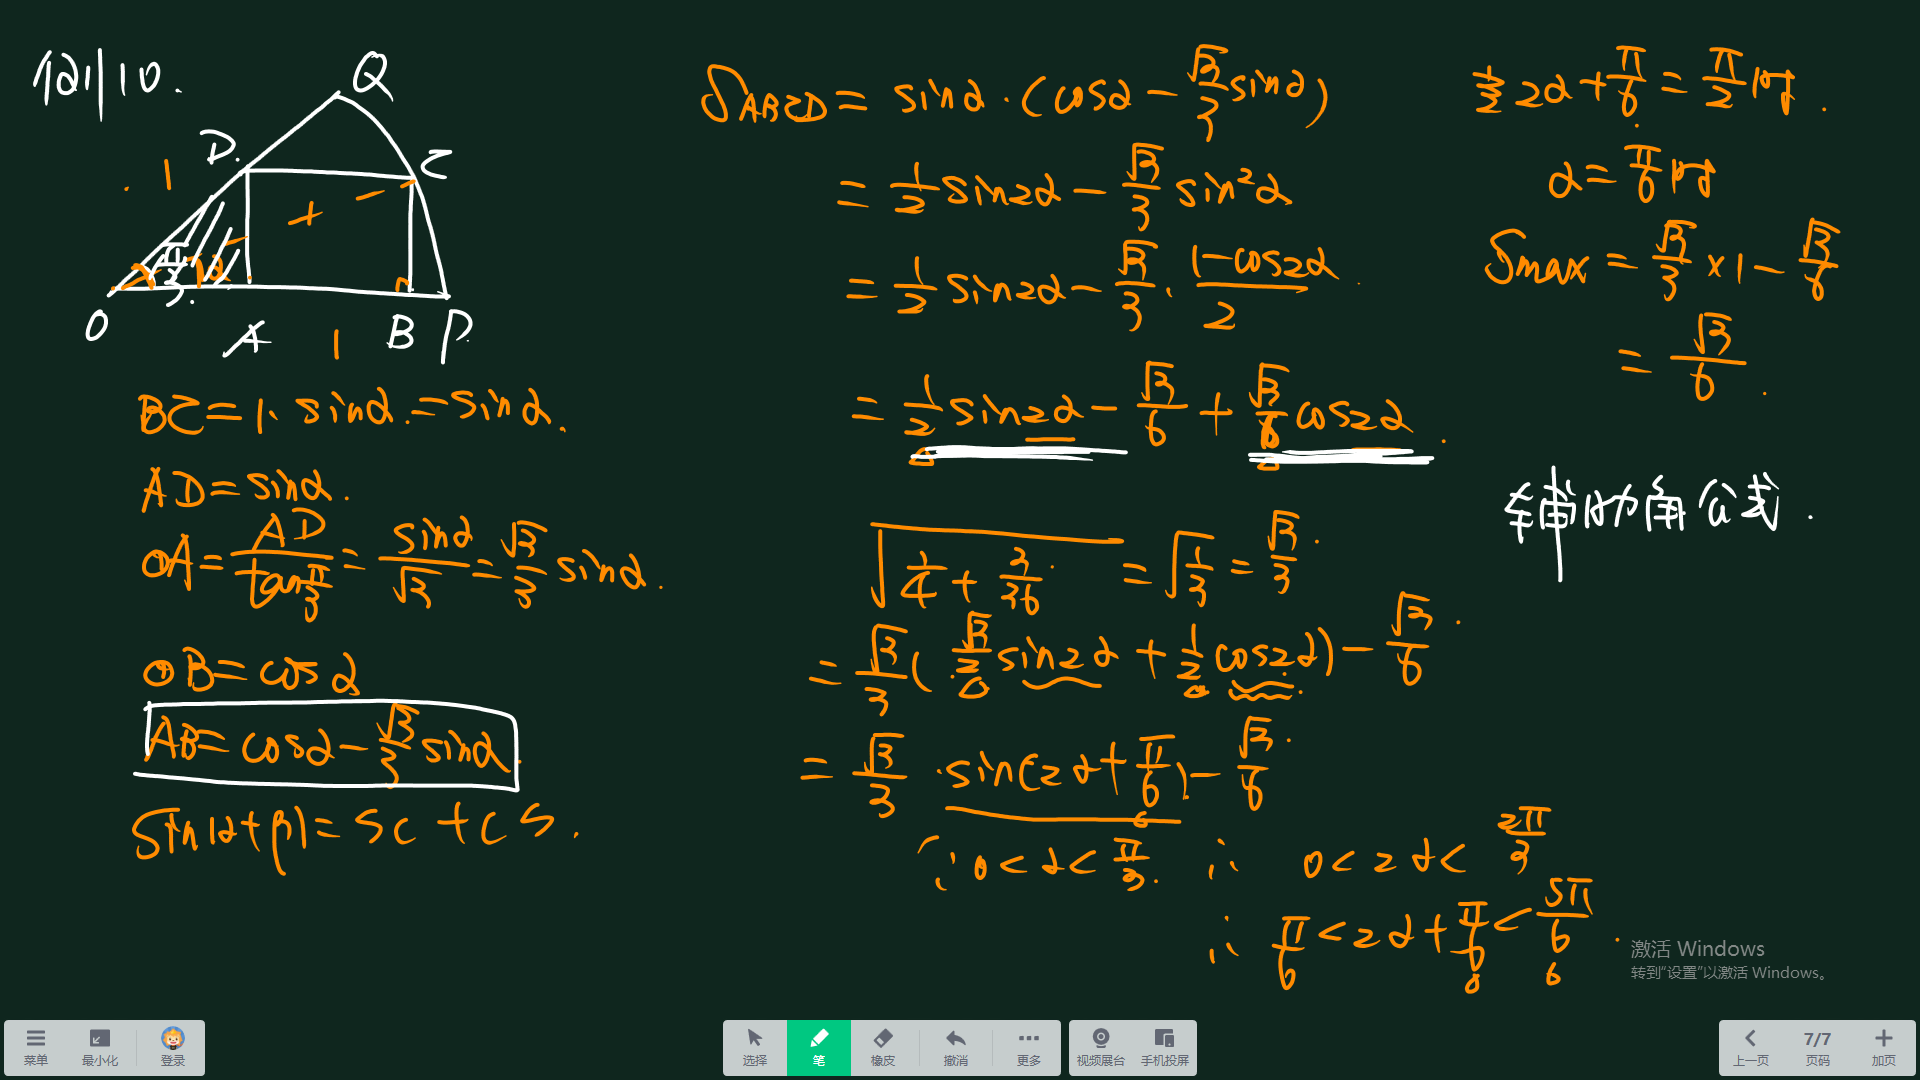 例10.
Q
D
C
1
π/3
O
A
1
B
P
BC=1·sinα=sinα.
AD=sinα.
OA=AD/tan π/3=sinα/√3=√3/3 sinα.
OB=cosα
AB=cosα-√3/3 sinα.
sin(α+β)=sc+cs.
S_ABCD=sinα·(cosα-√3/3 sinα)
=1/2 sin2α-√3/3 sin²α
=1/2 sin2α-√3/3·(1-cos2α)/2
=1/2 sin2α-√3/6+√3/6 cos2α.
√(1/4+3/36)=√(1/3)=√3/3.
=√3/3(√3/2 sin2α+1/2 cos2α)-√3/6.
=√3/3·sin(2α+π/6)-√3/6.
∵0<α<π/3. ∴ 0<2α<2π/3
∴ π/6<2α+π/6<5π/6.
当2α+π/6=π/2时.
α=π/6时
Smax=√3/3×1-√3/6
=√3/6.
辅助角公式.
激活 Windows
转到“设置”以激活 Windows。
菜单
最小化
登录
选择
笔
橡皮
撤消
更多
视频展台
手机投屏
上一页
7/7
页码
加页